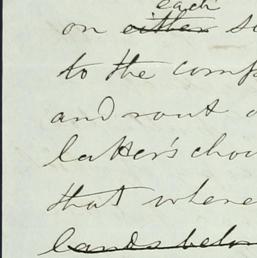 each
on either s
to the comp
and rout o
latter's cho
that where
lands belon